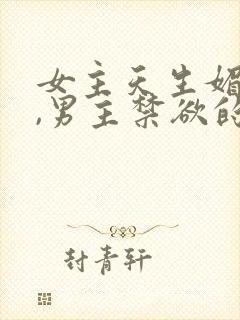 女主天生媚
,男主禁欲的
封青轩